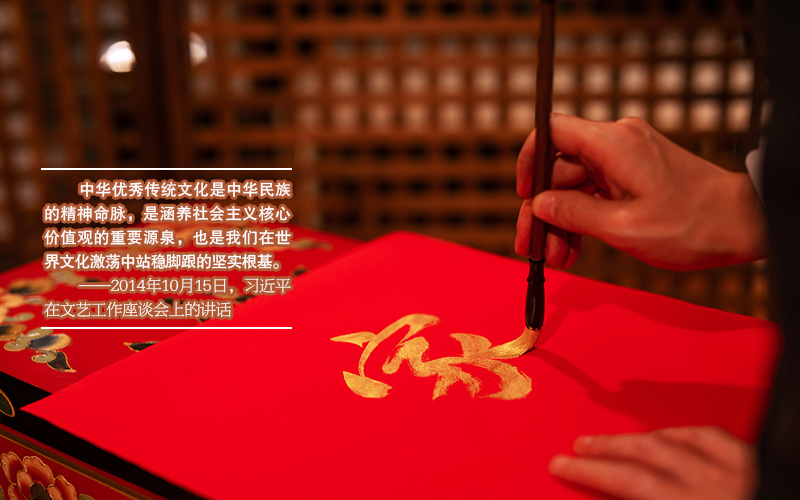 中华优秀传统文化是中华民族
的精神命脉，是涵养社会主义核心
价值观的重要源泉，也是我们在世
界文化激荡中站稳脚跟的坚实根基。
——2014年10月15日，习近平
在文艺工作座谈会上的讲话